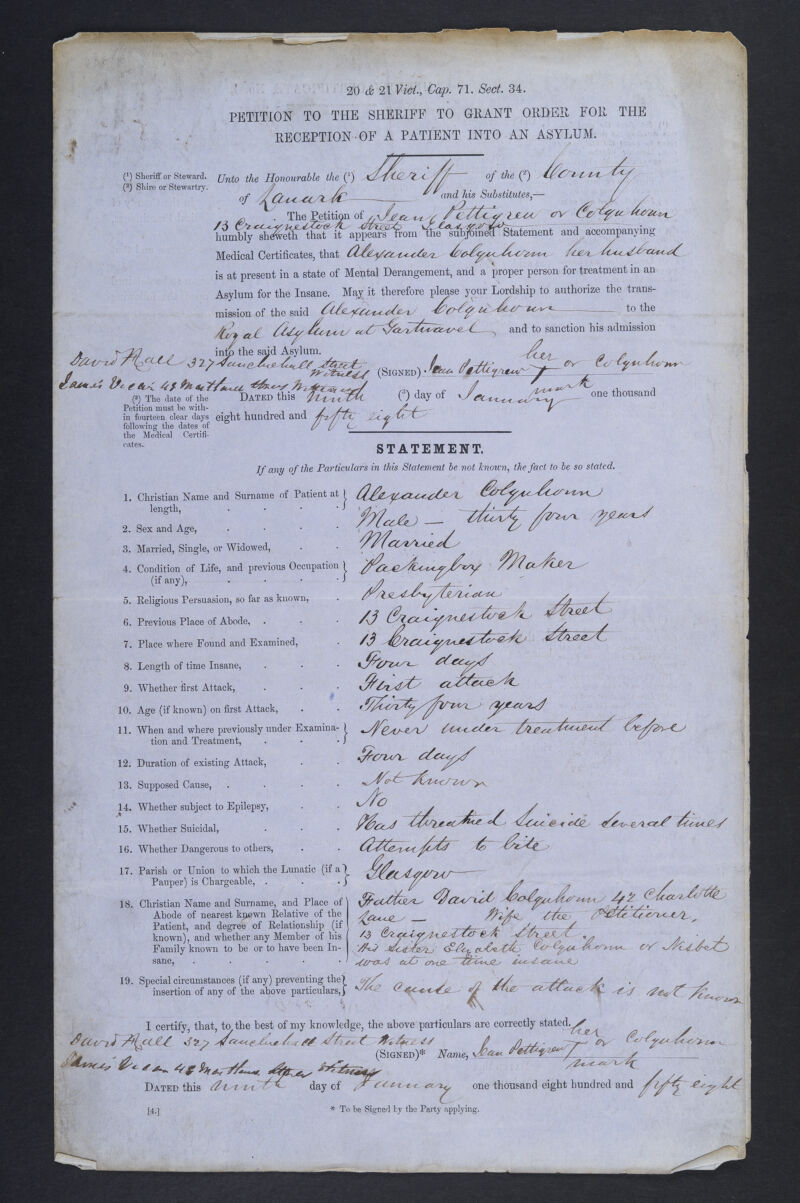 20 & 21 Vict., Cap. 71. Sect. 34.
PETITION TO THE SHERIFF TO GRANT ORDER FOR THE
RECEPTION OF A PATIENT INTO AN ASYLUM.
(¹) Sheriff or Steward.
(²) Shire or Stewartry.
Unto the Honourable the (¹) Sheriff of the (²) County
of Lanark and his Substitutes,—
The Petition of Jean Pettigrew or Colquhoun
13 Craignestock Street Glasgow
humbly sheweth that it appears from the subjoined Statement and accompanying
Medical Certificates, that Alexander Colquhoun her husband
is at present in a state of Mental Derangement, and a proper person for treatment in an
Asylum for the Insane. May it therefore please your Lordship to authorize the trans-
mission of the said Alexander Colquhoun to the
Royal Asylum at Gartnavel and to sanction his admission
into the said Asylum.
David Hall 327 Sauchiehall Street Witness
(SIGNED) Jean Pettigrew her or Colquhoun
mark
James 48 Witness
DATED this Ninth (³) day of January one thousand
eight hundred and fifty eight
(³) The date of the
Petition must be with-
in fourteen clear days
following the dates of
the Medical Certifi-
cates.
STATEMENT.
If any of the Particulars in this Statement be not known, the fact to be so stated.
1. Christian Name and Surname of Patient at length, Alexander Colquhoun
2. Sex and Age, Male — thirty four years
3. Married, Single, or Widowed, Married
4. Condition of Life, and previous Occupation (if any), Packingbox Maker
5. Religious Persuasion, so far as known, Presbyterian
6. Previous Place of Abode, 13 Craignestock Street
7. Place where Found and Examined, 13 Craignestock Street
8. Length of time Insane, Four days
9. Whether first Attack, First attack
10. Age (if known) on first Attack, Thirty four years
11. When and where previously under Examina-
tion and Treatment, Never under treatment before
12. Duration of existing Attack, Four days
13. Supposed Cause, Not known
14. Whether subject to Epilepsy, No
15. Whether Suicidal, Has threatned Suicide several times
16. Whether Dangerous to others, Attempts to bite
17. Parish or Union to which the Lunatic (if a
Pauper) is Chargeable, Glasgow
18. Christian Name and Surname, and Place of
Abode of nearest known Relative of the
Patient, and degree of Relationship (if
known), and whether any Member of his
Family known to be or to have been In-
sane,
Father David Colquhoun 42 Charlotte
Lane — Wife the Petitioner,
13 Craignestock Street
His Sister Elizabeth Colquhoun or Nisbet
was at one time insane
19. Special circumstances (if any) preventing the
insertion of any of the above particulars, The cause of the attack is not known
I certify, that, to the best of my knowledge, the above particulars are correctly stated.
David Hall 327 Sauchiehall Street Witness
(SIGNED)* Name, Jean Pettigrew her or Colquhoun
mark
James 48 Witness
DATED this Ninth day of January one thousand eight hundred and fifty eight
[4.]
* To be Signed by the Party applying.